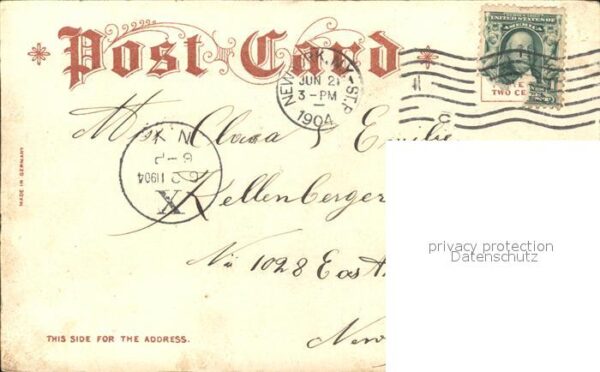 Post Card
NEW YORK, N.Y. STA.
JUN 21
3-PM
1904
UNITED STATES OF AMERICA
TWO CE
Miss Clara & Emilie
N.Y.
6-P
6 21 1904
X
Kellenberger
No 1028 East
New
MADE IN GERMANY
THIS SIDE FOR THE ADDRESS.
privacy protection
Datenschutz